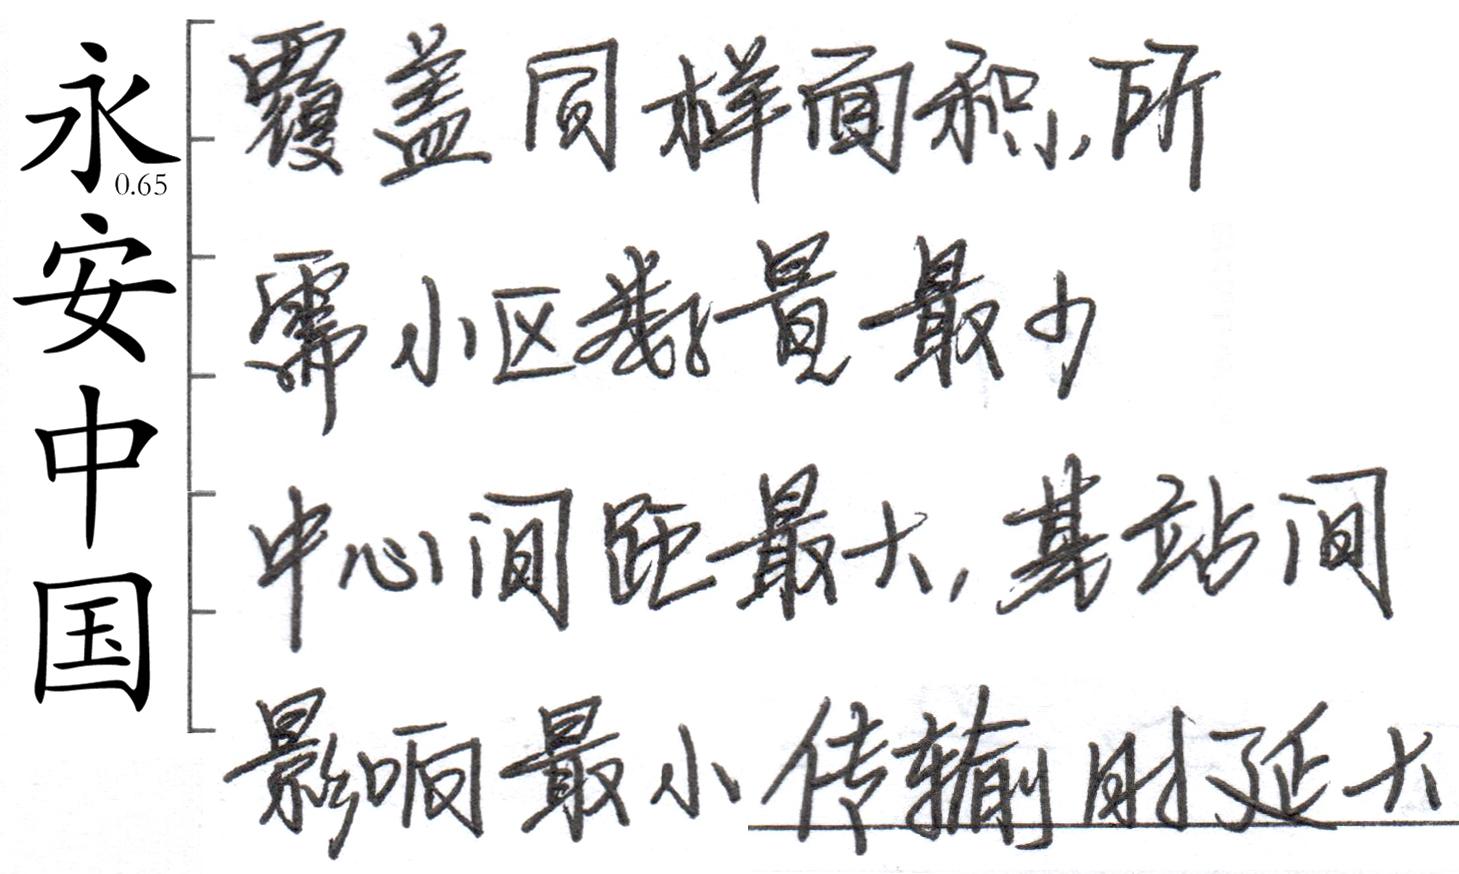 永安中国
0.65
覆盖同样面积，所
需小区数量最少
中心间距最大，基站间
影响最小 传输时延大